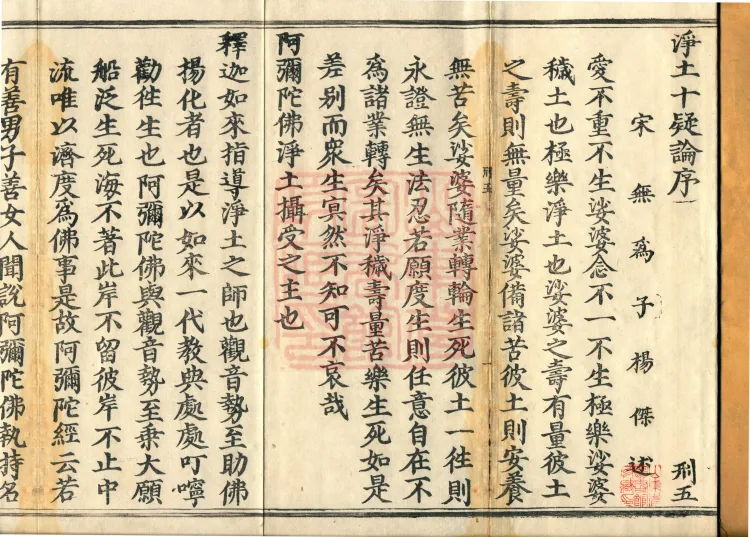 淨土十疑論序
刑五
宋無爲子楊傑述
愛不重不生娑婆念不一不生極樂娑婆
穢土也極樂淨土也娑婆之壽有量彼土
之壽則無量矣娑婆備諸苦彼土則安養
刑五
無苦矣娑婆隨業轉輪生死彼土一徃則
永證無生法忍若願度生則任意自在不
爲諸業轉矣其淨穢壽量苦樂生死如是
差别而衆生㝠然不知可不哀哉
阿彌陀佛淨土攝受之主也
釋迦如來指導淨土之師也觀音勢至助佛
揚化者也是以如來一代教典處處叮嚀
勸徃生也阿彌陀佛與觀音勢至乗大願
船泛生死海不著此岸不留彼岸不止中
流唯以濟度爲佛事是故阿彌陀經云若
有善男子善女人聞說阿彌陀佛執持名